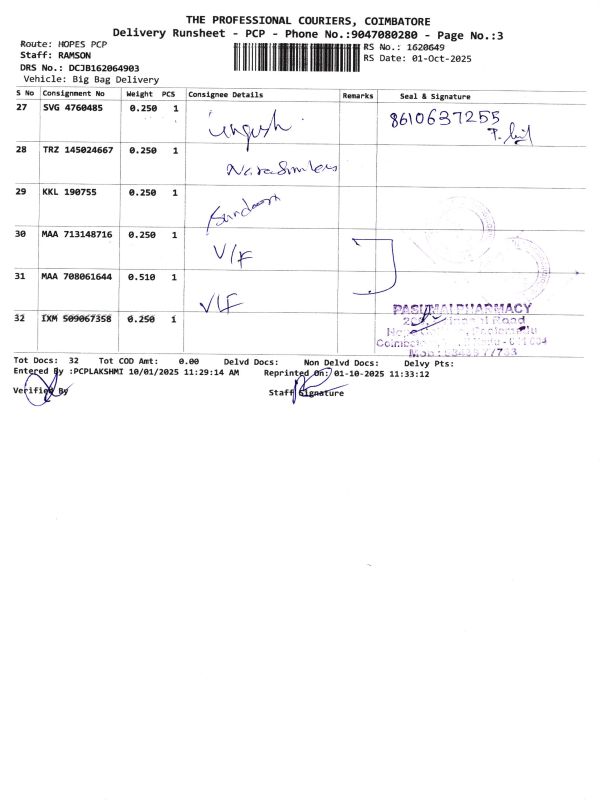 THE PROFESSIONAL COURIERS, COIMBATORE
Delivery Runsheet - PCP - Phone No.:9047080280 - Page No.:3
Route: HOPES PCP
Staff: RAMSON
DRS No.: DCJB162064903
Vehicle: Big Bag Delivery
RS No.: 1620649
RS Date: 01-Oct-2025
S No Consignment No Weight PCS Consignee Details Remarks Seal & Signature
27 SVG 4760485 0.250 1 8610637255
28 TRZ 145024667 0.250 1
29 KKL 190755 0.250 1
30 MAA 713148716 0.250 1 V/F
31 MAA 708061644 0.510 1 V/F
PASUMAI PHARMACY
32 IXM 509067358 0.250 1
Tot Docs: 32 Tot COD Amt: 0.00 Delvd Docs: Non Delvd Docs: Delvy Pts:
Entered By :PCPLAKSHMI 10/01/2025 11:29:14 AM Reprinted On: 01-10-2025 11:33:12
Verified By Staff Signature